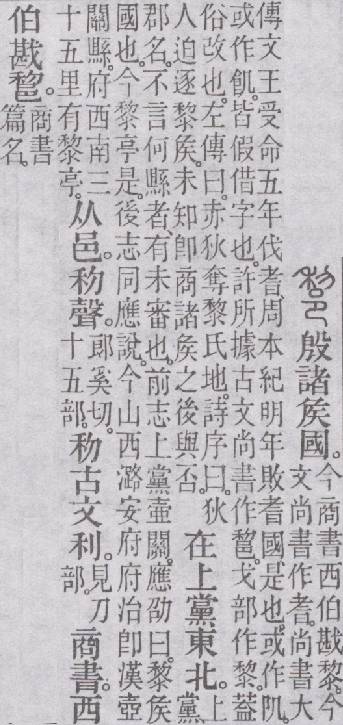 殷諸矦國。今商書西伯戡黎。今
文尚書作耆。尚書大
傳文王受命五年伐耆。周本紀明年敗耆國。是也。或作阢。
或作飢。皆假借字也。許所據古文尚書作𨛫。戈部作黎。蓋
俗改也。左傳曰。赤狄奪黎氏地。詩序曰。狄
人迫逐黎矦。未知卽商諸矦之後與否。在上黨東北。上
黨
郡名。不言何縣者。有未審也。前志上黨壺關。應劭曰。黎矦
國也。今黎亭是。後志同應說。今山西潞安府府治卽漢壺
關縣。府西南三
十五里有黎亭。从邑。𥝢聲。郎奚切。十五部。𥝢古文利。見刀部。商書。西
伯戡𨛫。商書
篇名。